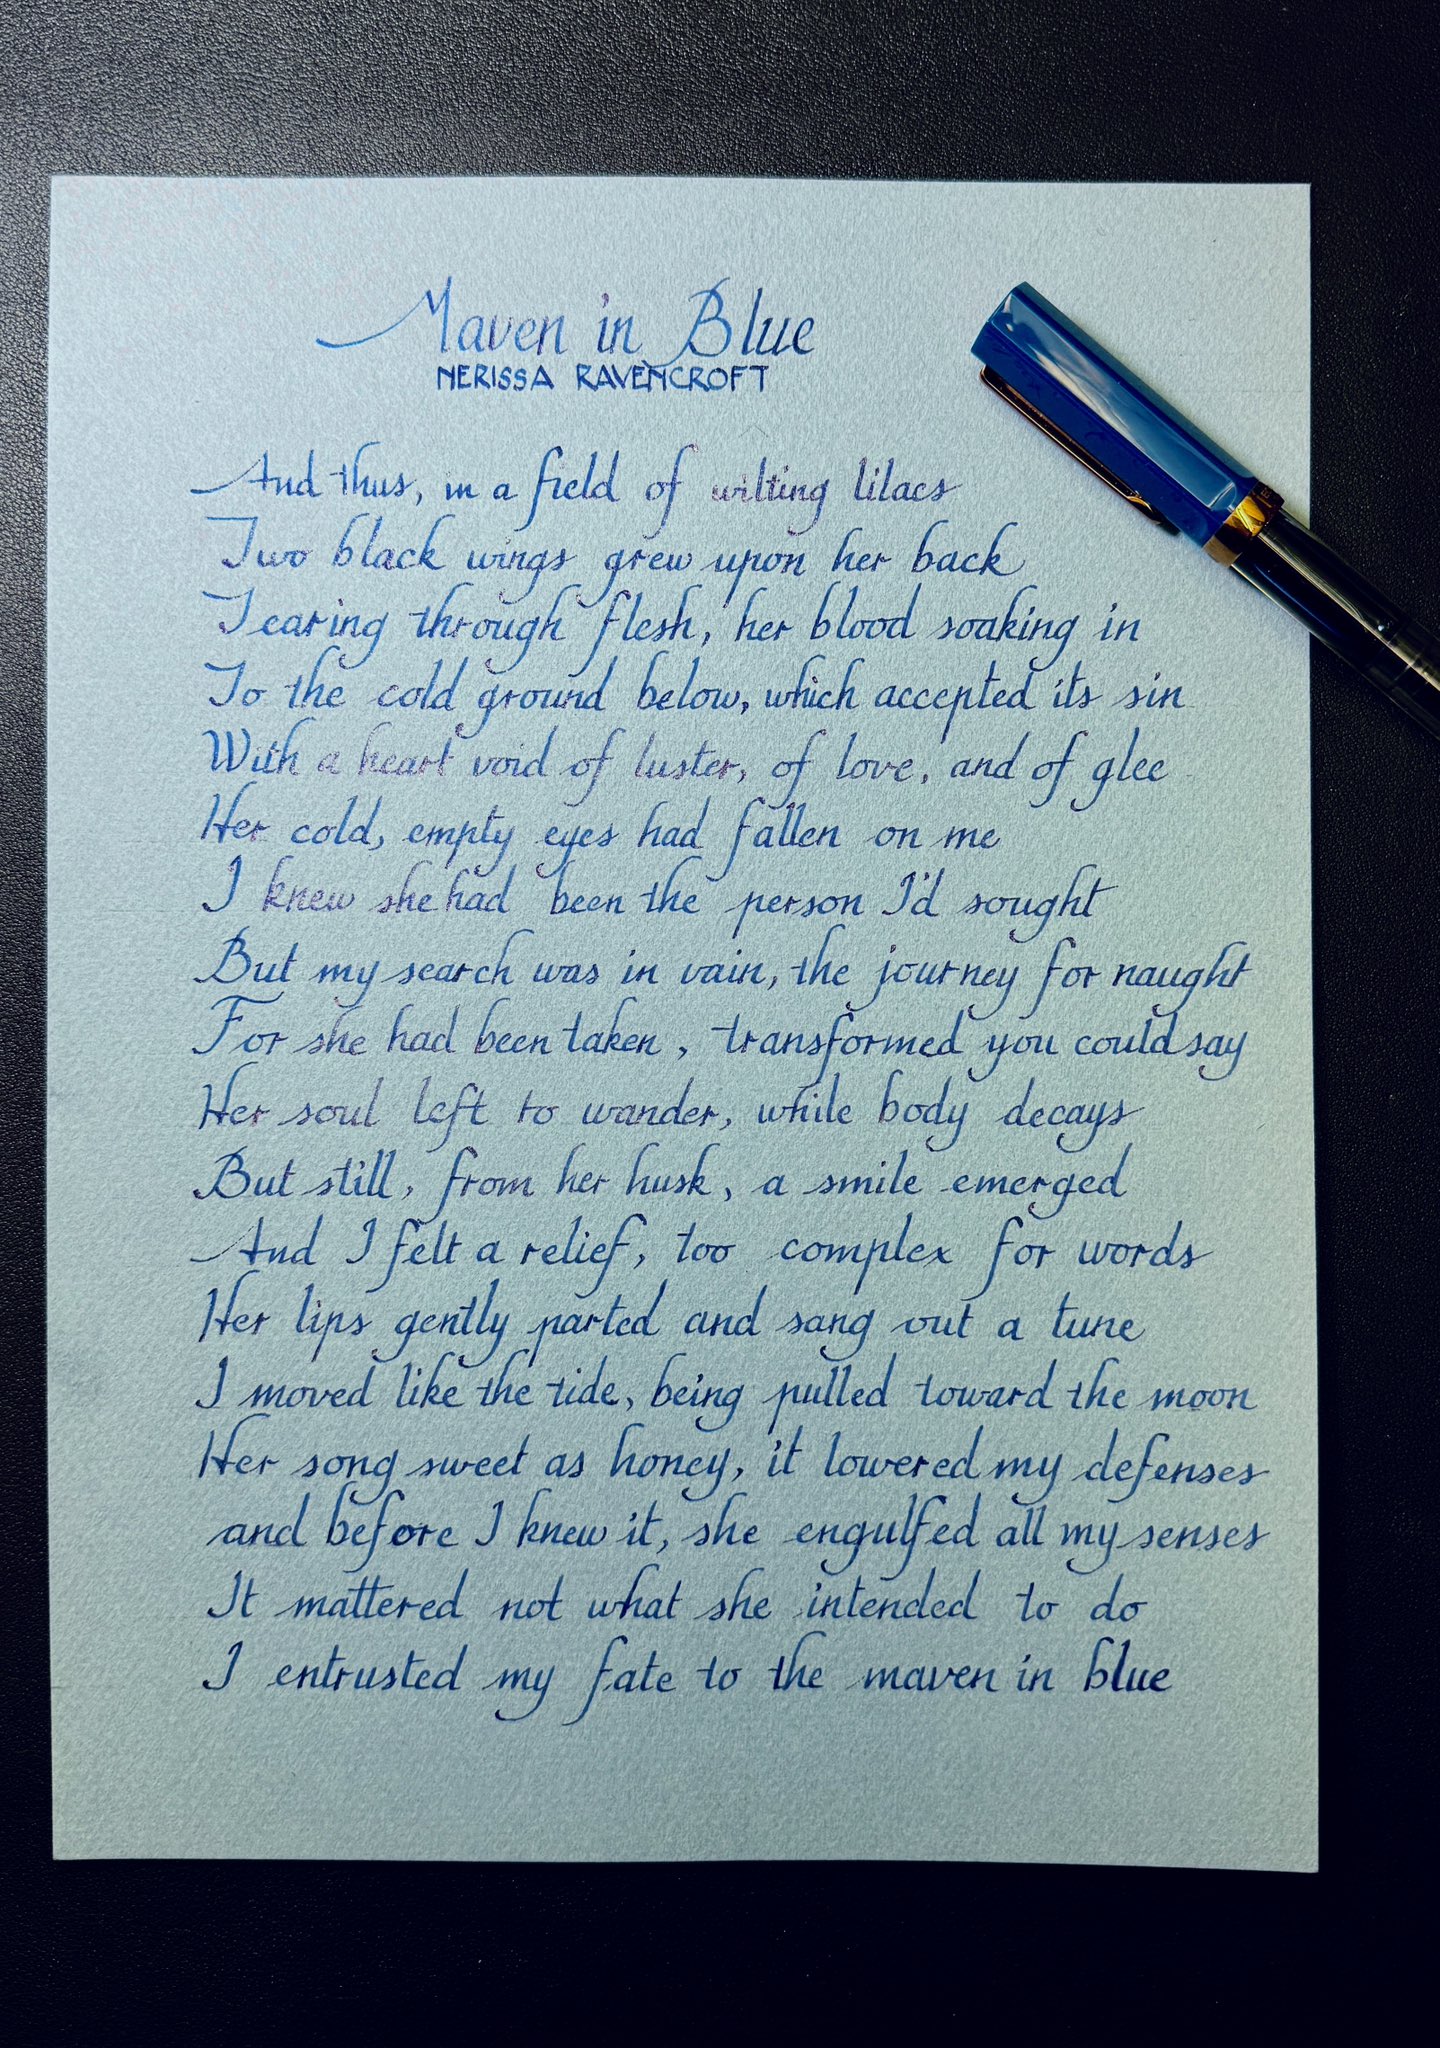 Maven in Blue
NERISSA RAVENCROFT
And thus, in a field of wilting lilacs
Two black wings grew upon her back
Tearing through flesh, her blood soaking in
To the cold ground below, which accepted its sin
With a heart void of luster, of love, and of glee
Her cold, empty eyes had fallen on me
I knew she had been the person I'd sought
But my search was in vain, the journey for naught
For she had been taken, transformed you could say
Her soul left to wander, while body decays
But still, from her husk, a smile emerged
And I felt a relief, too complex for words
Her lips gently parted and sang out a tune
I moved like the tide, being pulled toward the moon
Her song sweet as honey, it lowered my defenses
and before I knew it, she engulfed all my senses
It mattered not what she intended to do
I entrusted my fate to the maven in blue